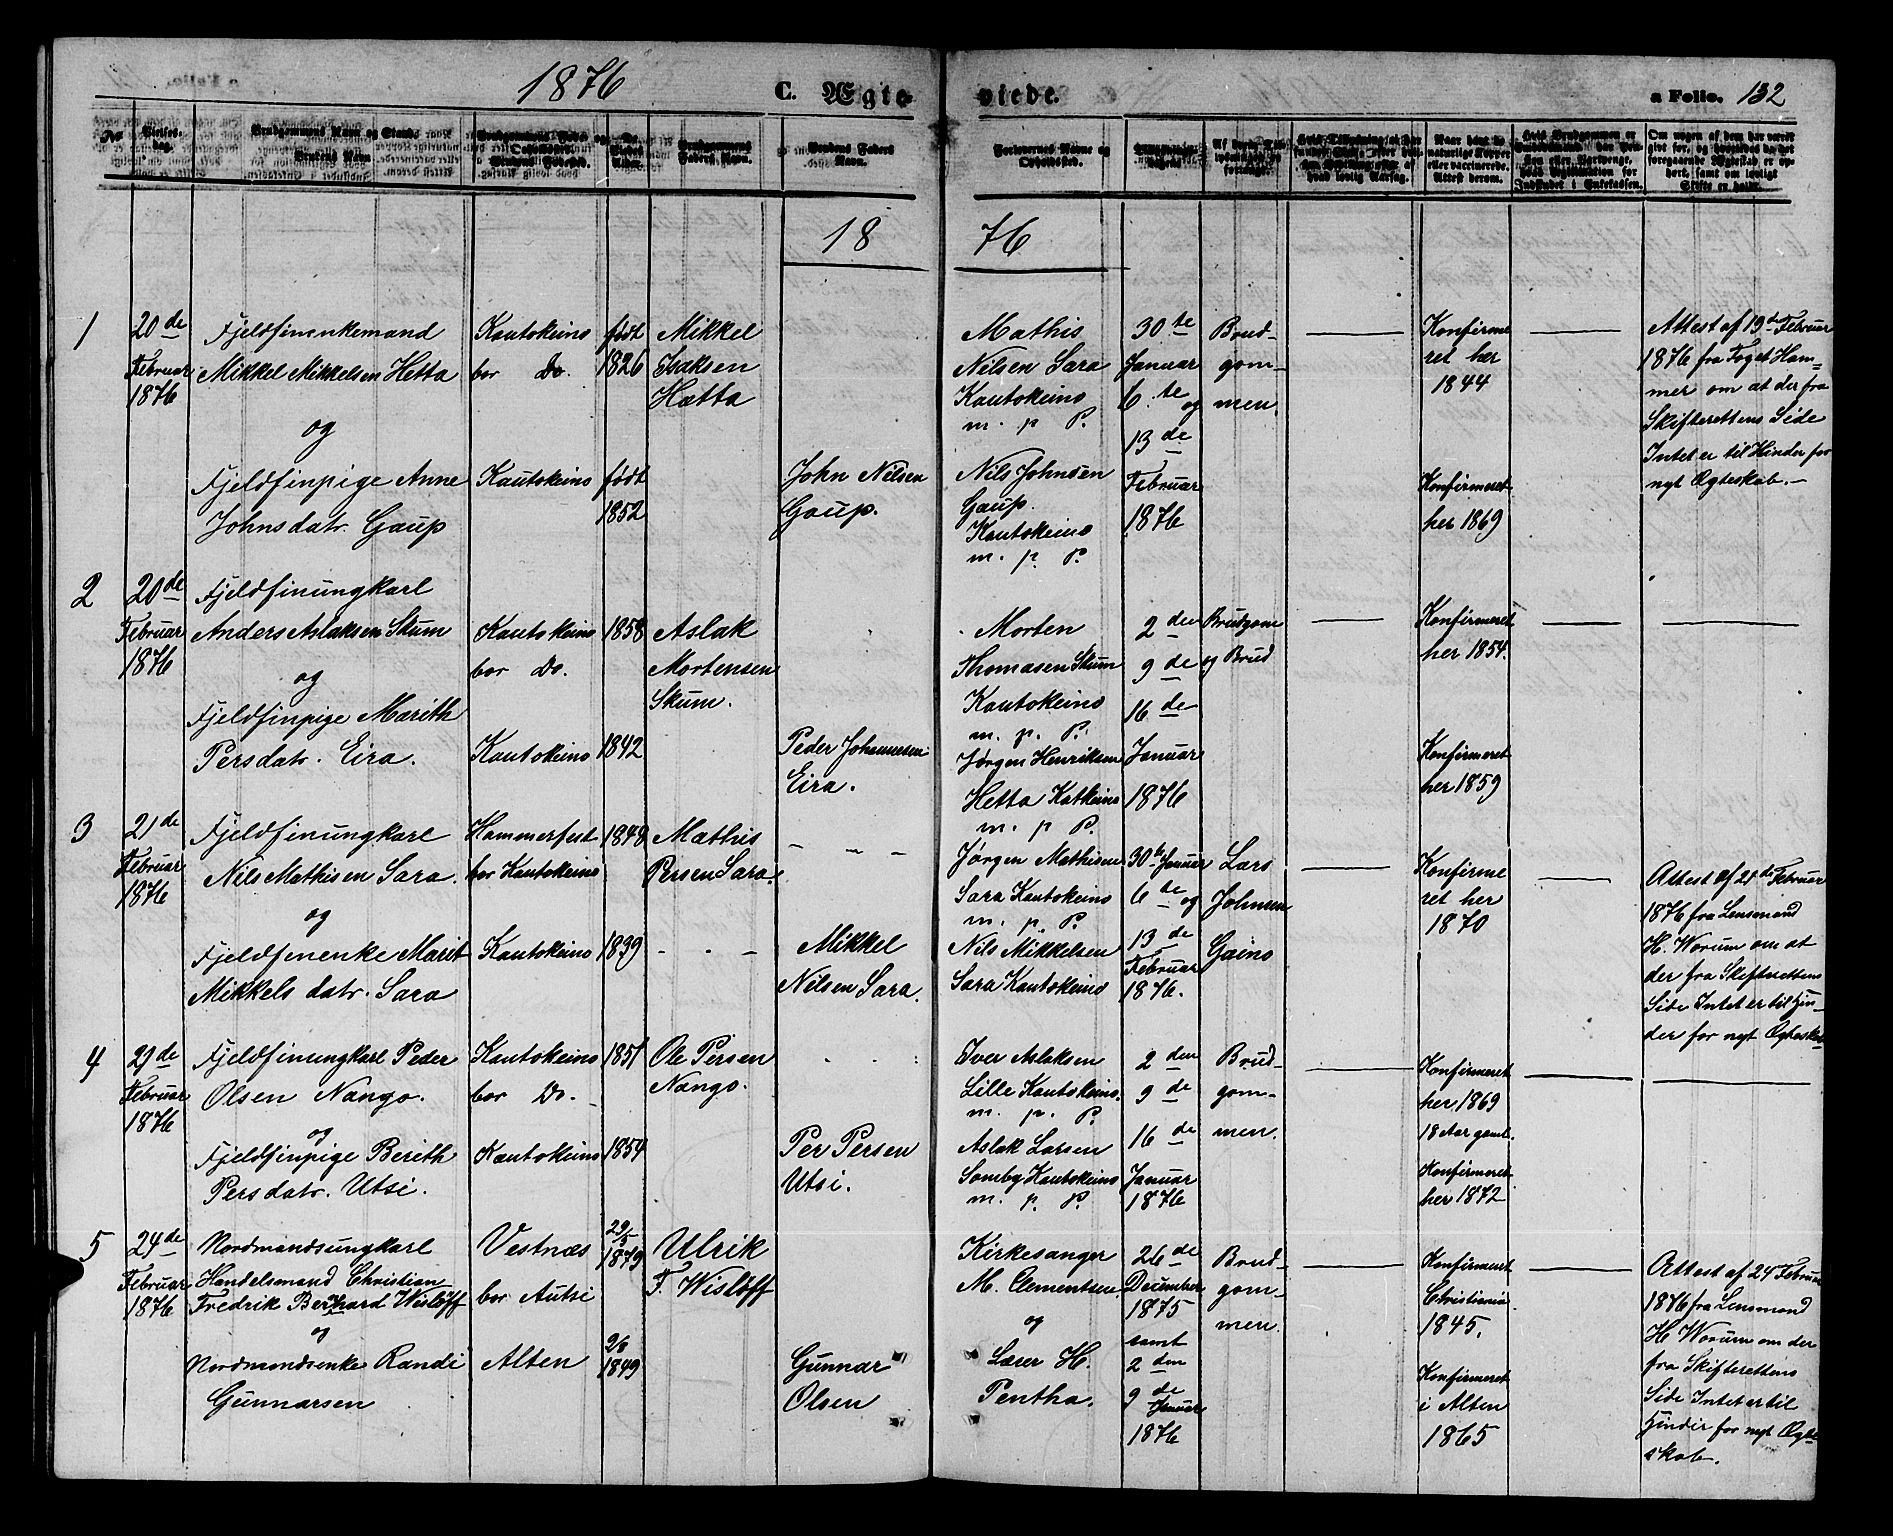 1876 C. Ægte viede. a Folio. 132
No
Vielses-dag.
Brudgommens Navn og Stand
Brudens Navn
Brudens Fødested.
Brudgommens Faders Navn.
Brudens Faders Navn.
Forlovernes Navne og Opholdssted.
18 76
1
20de Februar 1876
Fjeldfinenkemand
Mikkel Mikkelsen Hetta
og
Fjeldfinpige Anne
Johnsdatr. Gaup
Kautokeino
bor Do.
Kautokeino
født
1826
født
1852
Mikkel
Isaksen
Hætta
John Nilsen
Gaup.
Mathis
Nilsen Sara
Kautokeino
m. p. P.
Nils Johnsen
Gaup.
Kautokeino
m. p. P.
30te
Januar
6.te og
13de
Februar
1876
Brud-
gom-
men.
Konfirme
ret her
1844
Konfirmeret
her 1869
Attest af 19de Februar
1876 fra Foget Ham-
mer om at der fra
Skifterettens Side
Intet er til Hinder for
nyt Ægteskab.-
2
20de
Februar
1876
Fjeldfinungkarl
Anders Aslaksen Skum
og
Fjeldfinpige Marith
Persdatr. Eira.
Kautokeino
bor Do.
Kautokeino
1838
1842
Aslak
Mortensen
Skum.
Peder Johannesen
Eira.
Morten
Thomasen Skum
Kautokeino
m. p. P.
Jørgen Henriksen
Hetta Katkeino
m. p. P.
2den
9de
16de
Januar
1876
Brudgom
og Brud
Konfirmeret
her 1854.
Konfirmeret
her 1859
3
21de
Februar
1876
Fjeldfinungkarl
Nils Mathisen Sara.
og
Fjeldfinenke Marit
Mikkels datr. Sara
Hammerfest
bor Kautokeino
Kautokeino
1848
1839
Mathis
Persen Sara.
Mikkel
Nilsen Sara.
Jørgen Mathisen
Sara Kautokeino
m. p. P.
Nils Mikkelsen
Sara Kautokeino
30te Januar
6te og
13de
Februar
1876.
Lars
Johnsen
Gaino
Konfirme
ret her
1870
Attest af 21de Februar
1876 fra Lensmand
H. Worum om at
der fra Skifterettens
Side Intet er til Hin-
der for nyt Ægteskab
4
21de
Februar
1876
Fjeldfinungkarl Peder
Olsen Nango.
og
Fjeldfinpige Berith
Persdatr. Utsi.
Kautokeino
bor Do.-
Kautokeino
1851
1854
Ole Persen
Nango.
Per Persen
Utsi.
Iver Aslaksen
Lille Kautokeino.
m. p. P.
Aslak Larsen
Somby Kautokeino
m. p. P.
2den
9de
16de
Januar
1876
Brud-
gom-
men.
Konfirmeret
her 1869
18 Aar gaml.
Konfirmeret
her 1872
5
24de
Februar
1876
Nordmandsungkarl
Handelsmand Christian
Fredrik Bernhard Wisløff
og
Nordmandsenke Randi
Gunnarsen
Vestnæs
bor Autsi
Alten
29/5
1849
Ulrik
F. Wisløff
Gunnar
Olsen
Kirkesanger
M. Clementsen
og
Lærer H.
Pentha.
26de
December
1875
samt
2den
9de
Januar
1876
Brud-
gom-
men.
Konfirmeret
Christiania
1845.
Konfirmeret
i Alten
1865
Attest af 24 Februar
1876 fra Lensmand
H Worum om der
fra Skifterettens
Side Intet er til
Hinder for nyt Ægte
skab.